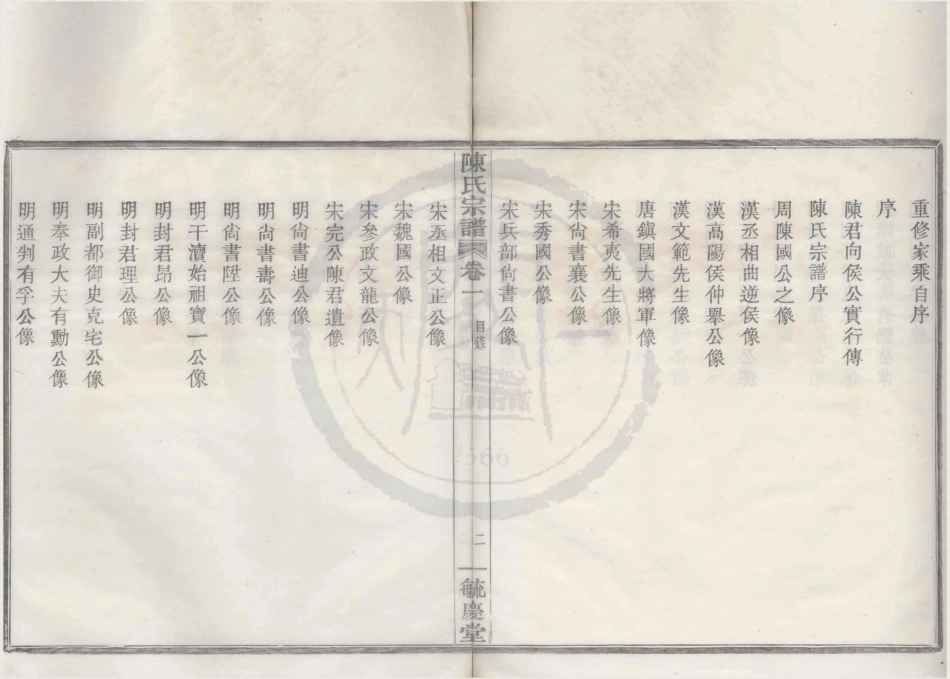 重修家乘自序
序
陳君向侯公實行傳
陳氏宗譜序
周陳國公之像
漢丞相曲逆侯像
漢高陽侯仲舉公像
漢文範先生像
唐鎭國大將軍像
宋希夷先生像
宋尙書襄公像
宋秀國公像
宋兵部尙書公像
陳氏宗譜 卷一 目錄 二 毓慶堂
宋丞相文正公像
宋魏國公像
宋參政文龍公像
宋完公陳君遺像
明尙書迪公像
明尙書壽公像
明尙書陞公像
明干瀆始祖寶一公像
明封君昂公像
明封君理公像
明副都御史克宅公像
明奉政大夫有勳公像
明通判有孚公像